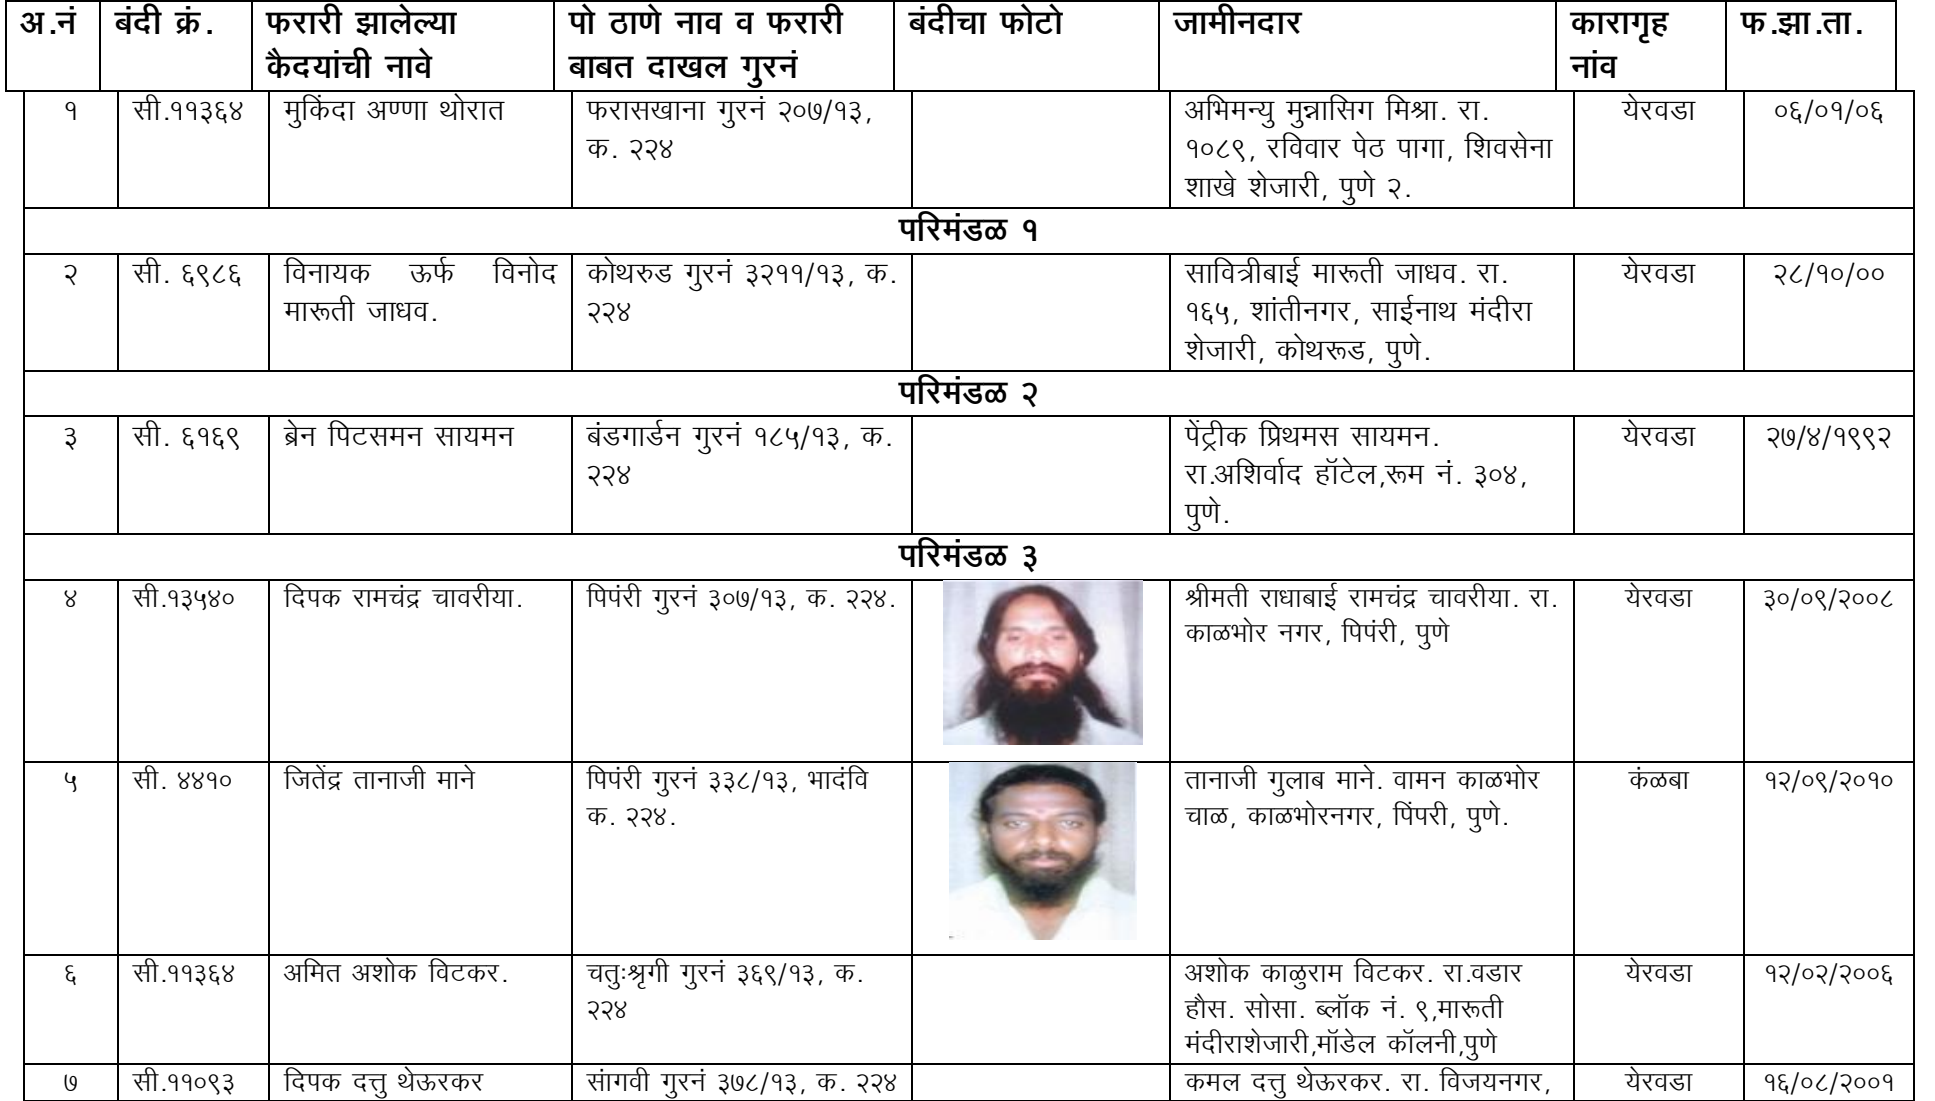 अ.नं बंदी क्रं. फरारी झालेल्या कैदयांची नावे पो ठाणे नाव व फरारी बाबत दाखल गुरनं बंदीचा फोटो जामीनदार कारागृह नांव फ.झा.ता.
१ सी.११३६४ मुकिंदा अण्णा थोरात फरासखाना गुरनं २०७/१३, क. २२४ अभिमन्यु मुन्नासिग मिश्रा. रा. १०८९, रविवार पेठ पागा, शिवसेना शाखे शेजारी, पुणे २. येरवडा ०६/०१/०६
परिमंडळ १
२ सी. ६९८६ विनायक ऊर्फ विनोद मारूती जाधव. कोथरुड गुरनं ३२११/१३, क. २२४ सावित्रीबाई मारूती जाधव. रा. १६५, शांतीनगर, साईनाथ मंदीरा शेजारी, कोथरूड, पुणे. येरवडा २८/१०/००
परिमंडळ २
३ सी. ६१६९ ब्रेन पिटसमन सायमन बंडगार्डन गुरनं १८५/१३, क. २२४ पेंट्रीक प्रिथमस सायमन. रा.अशिर्वाद हॉटेल,रूम नं. ३०४, पुणे. येरवडा २७/४/१९९२
परिमंडळ ३
४ सी.१३५४० दिपक रामचंद्र चावरीया. पिपंरी गुरनं ३०७/१३, क. २२४. श्रीमती राधाबाई रामचंद्र चावरीया. रा. काळभोर नगर, पिपंरी, पुणे येरवडा ३०/०९/२००८
५ सी. ४४१० जितेंद्र तानाजी माने पिपंरी गुरनं ३३८/१३, भादंवि क. २२४. तानाजी गुलाब माने. वामन काळभोर चाळ, काळभोरनगर, पिंपरी, पुणे. कंळबा १२/०९/२०१०
६ सी.११३६४ अमित अशोक विटकर. चतुःश्रृगी गुरनं ३६९/१३, क. २२४ अशोक काळुराम विटकर. रा.वडार हौस. सोसा. ब्लॉक नं. ९,मारूती मंदीराशेजारी,मॉडेल कॉलनी,पुणे येरवडा १२/०२/२००६
७ सी.११०९३ दिपक दत्तु थेऊरकर सांगवी गुरनं ३७८/१३, क. २२४ कमल दत्तु थेऊरकर. रा. विजयनगर, येरवडा १६/०८/२००१